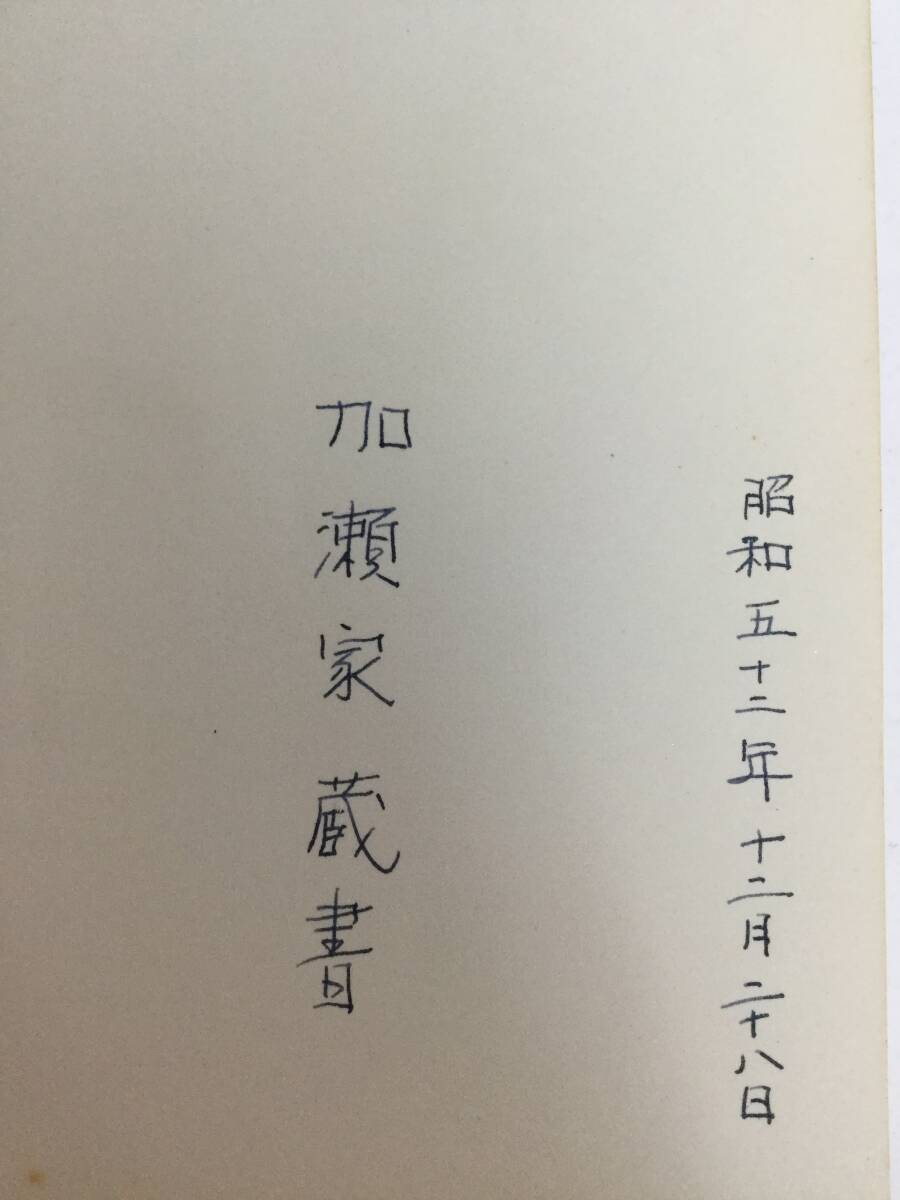 昭和五十二年十二月二十八日
加瀬家蔵書